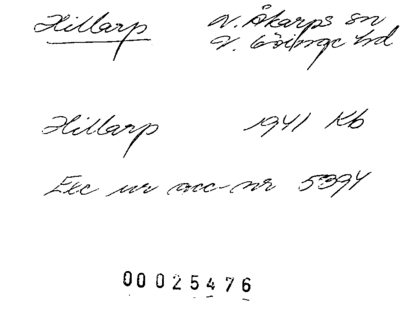 Hillarp N. Åkarps sn
V. Göinge hd
Hillarp 1941 Kb
Exc ur acc-nr 5394
00025476